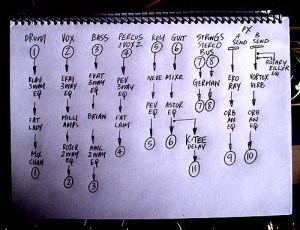 DRUM VOX BASS PERCUS KEY GUIT STRINGS FX
1 VOX 2 STEREO A B
BUS SEND SEND
1 2 3 4 5 6 7 8
ROTARY
KILLER
EQ
3WAY 3WAY 3WAY PEV NEVE MIXR GERMAN EKO VORTEX
EQ EQ EQ 3WAY RAY VERB
EQ
7 8
FAT MILLI BRIAN FAT PEV ASTOR ORB ORB
LADY AMPS LADY EQ EQ AN AN
EQ EQ
K-TEE
MIX 2WAY AMC 4 5 6 DELAY 9 10
CHAN EQ 2WAY
EQ
1 2 3 11